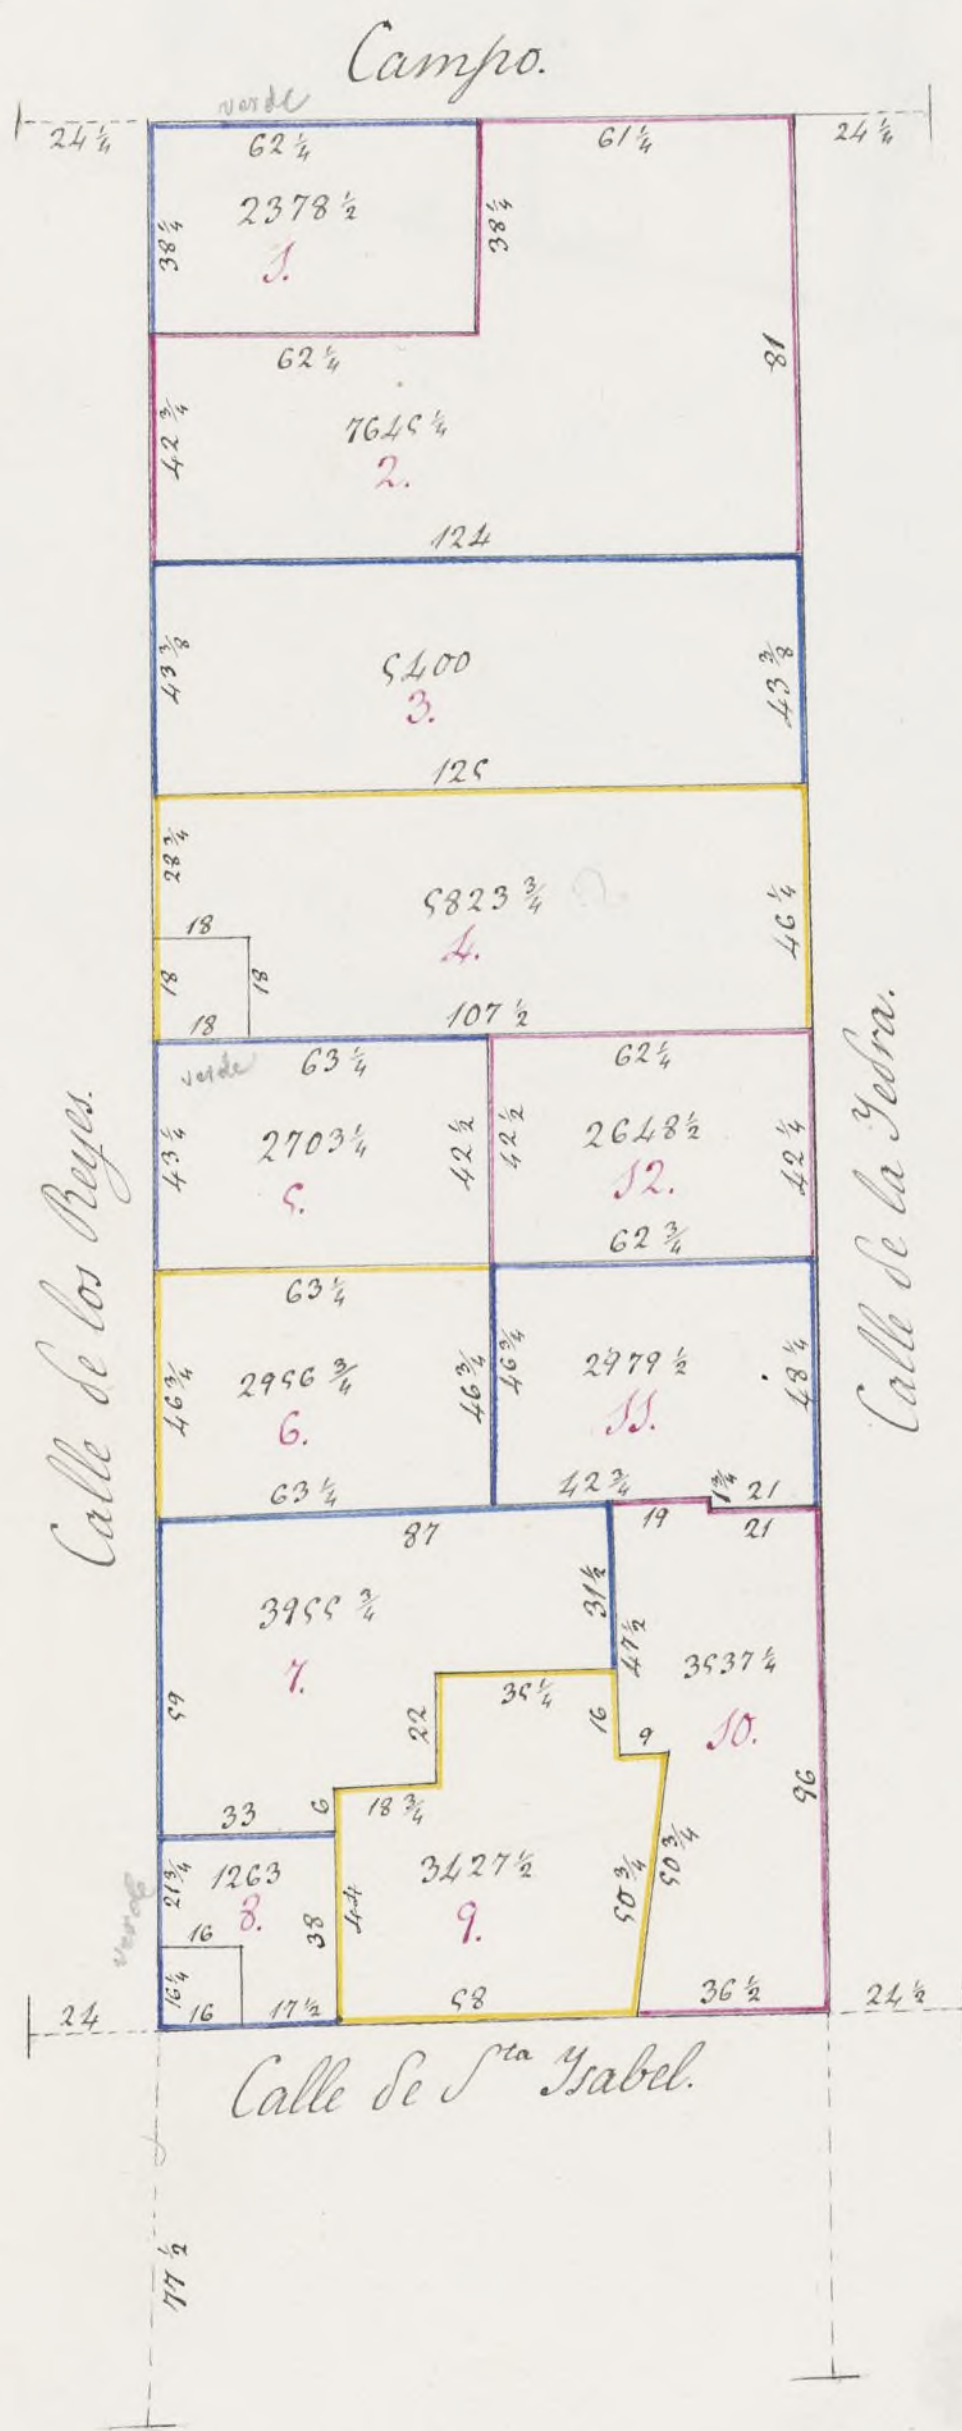 Campo.
verde
24 ¼
62 ¼
61 ¼
24 ¼
2378 ½
38 ¼
38 ¼
1.
62 ¼
81
42 ¾
7645 ¼
2.
124
43 ⅜
5400
43 ⅜
3.
125
28 ¾
5823 ¾
46 ¼
18
4.
18
18
18
107 ½
verde
63 ¼
62 ¼
43 ¼
2703 ¼
42 ½
42 ½
2648 ½
42 ¼
5.
12.
62 ¾
63 ¼
46 ¾
2956 ¾
46 ¾
46 ¾
2979 ½
48 ¼
6.
11.
63 ¼
42 ¾
1 ¾
21
87
19
21
3955 ¾
31 ½
47 ½
3537 ¼
7.
59
22
35 ¼
16
9
10.
96
33
6
18 ¾
verde
21 ¾
1263
38
44
3427 ½
50 ¾
50 ¾
8.
9.
16
16 ¼
16
17 ½
58
36 ½
24
24 ½
Calle de los Reyes.
Calle de la Yedra.
Calle de Sta Ysabel.
77 ½